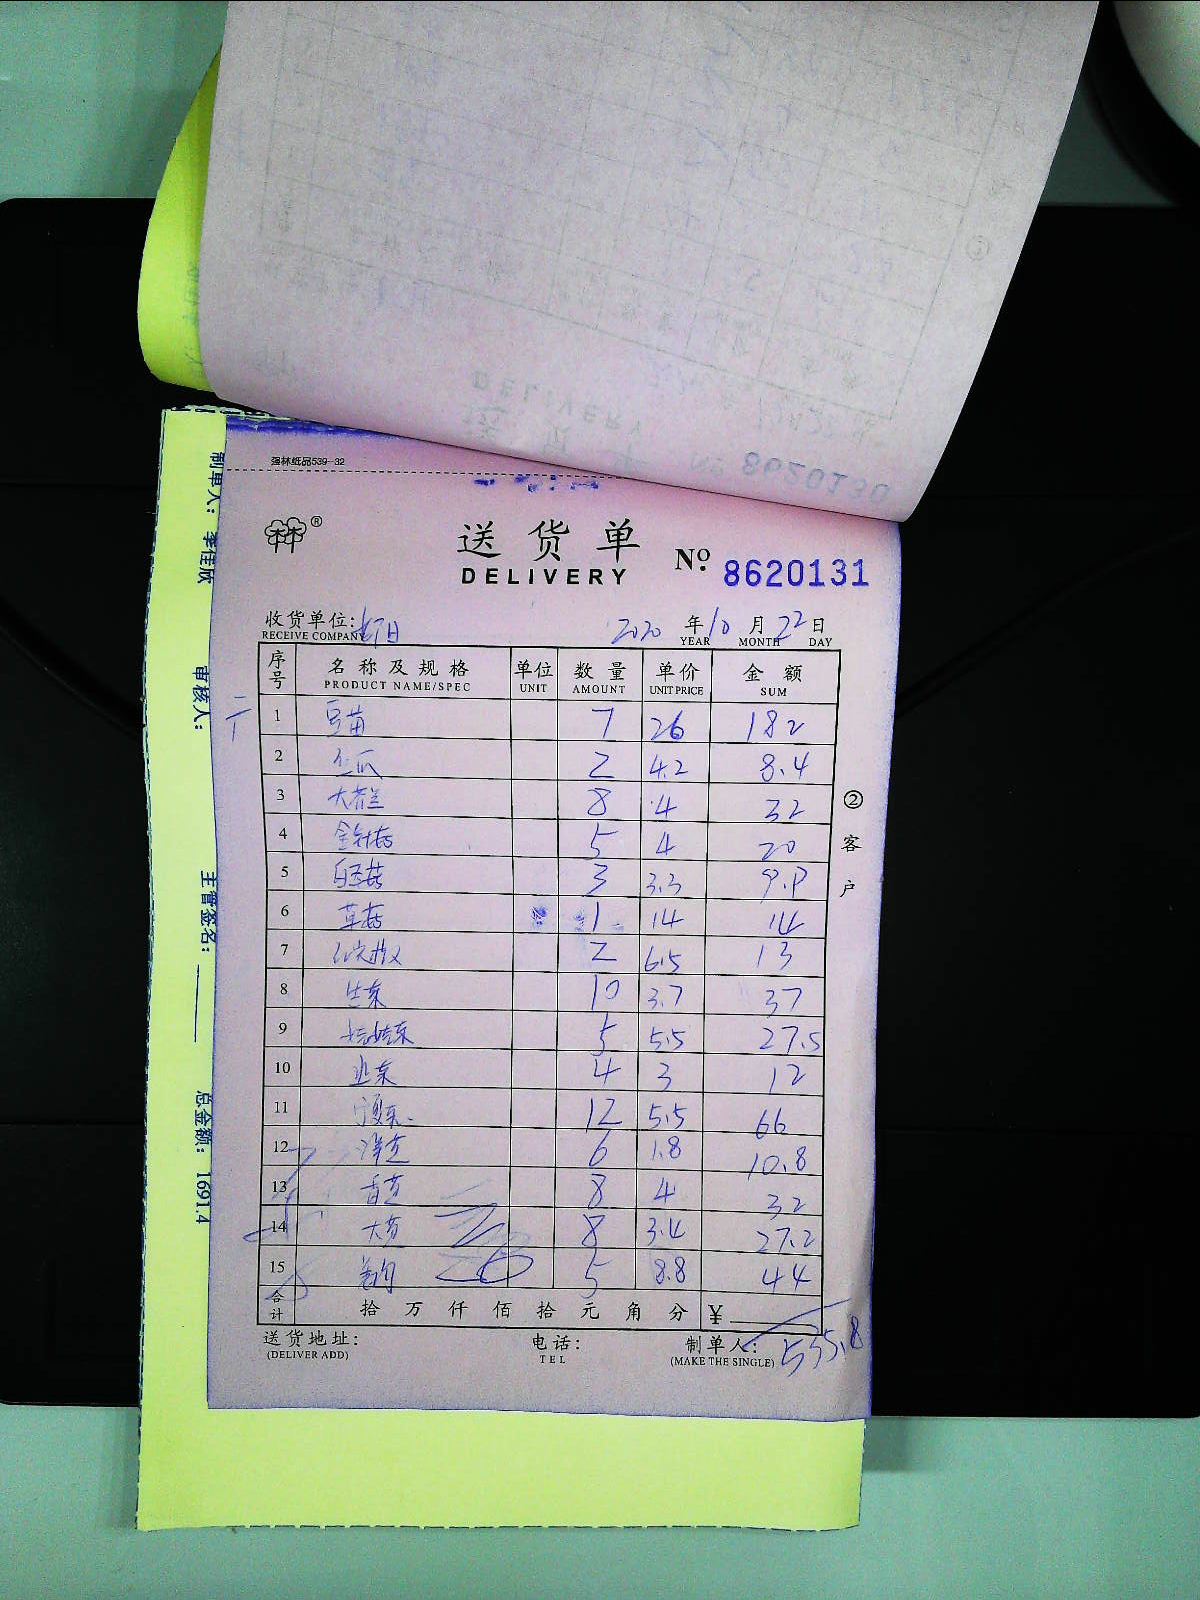 8620130
DELIVERY
强林纸品539-32
制单人: 李佳欣
审核人:
主管签名:
总金额: 1691.4
送货单
DELIVERY
No. 8620131
收货单位: 2020 年 10 月 22 日
RECEIVE COMPANY YEAR MONTH DAY
序号 名称及规格 单位 数量 单价 金额
PRODUCT NAME/SPEC UNIT AMOUNT UNIT PRICE SUM
1 豆苗 7 26 182
2 2 4.2 8.4
3 8 4 32
4 金针菇 5 4 20
5 3 3.3 9.9
6 草菇 1 14 14
7 2 6.5 13
8 生菜 10 3.7 37
9 娃娃菜 5 5.5 27.5
10 韭菜 4 3 12
11 12 5.5 66
12 洋芝 6 1.8 10.8
13 8 4 32
14 8 3.4 27.2
15 5 8.8 44
合计 拾万仟佰拾元角分 ¥
535.8
送货地址: 电话: 制单人:
(DELIVER ADD) TEL (MAKE THE SINGLE)
②客户